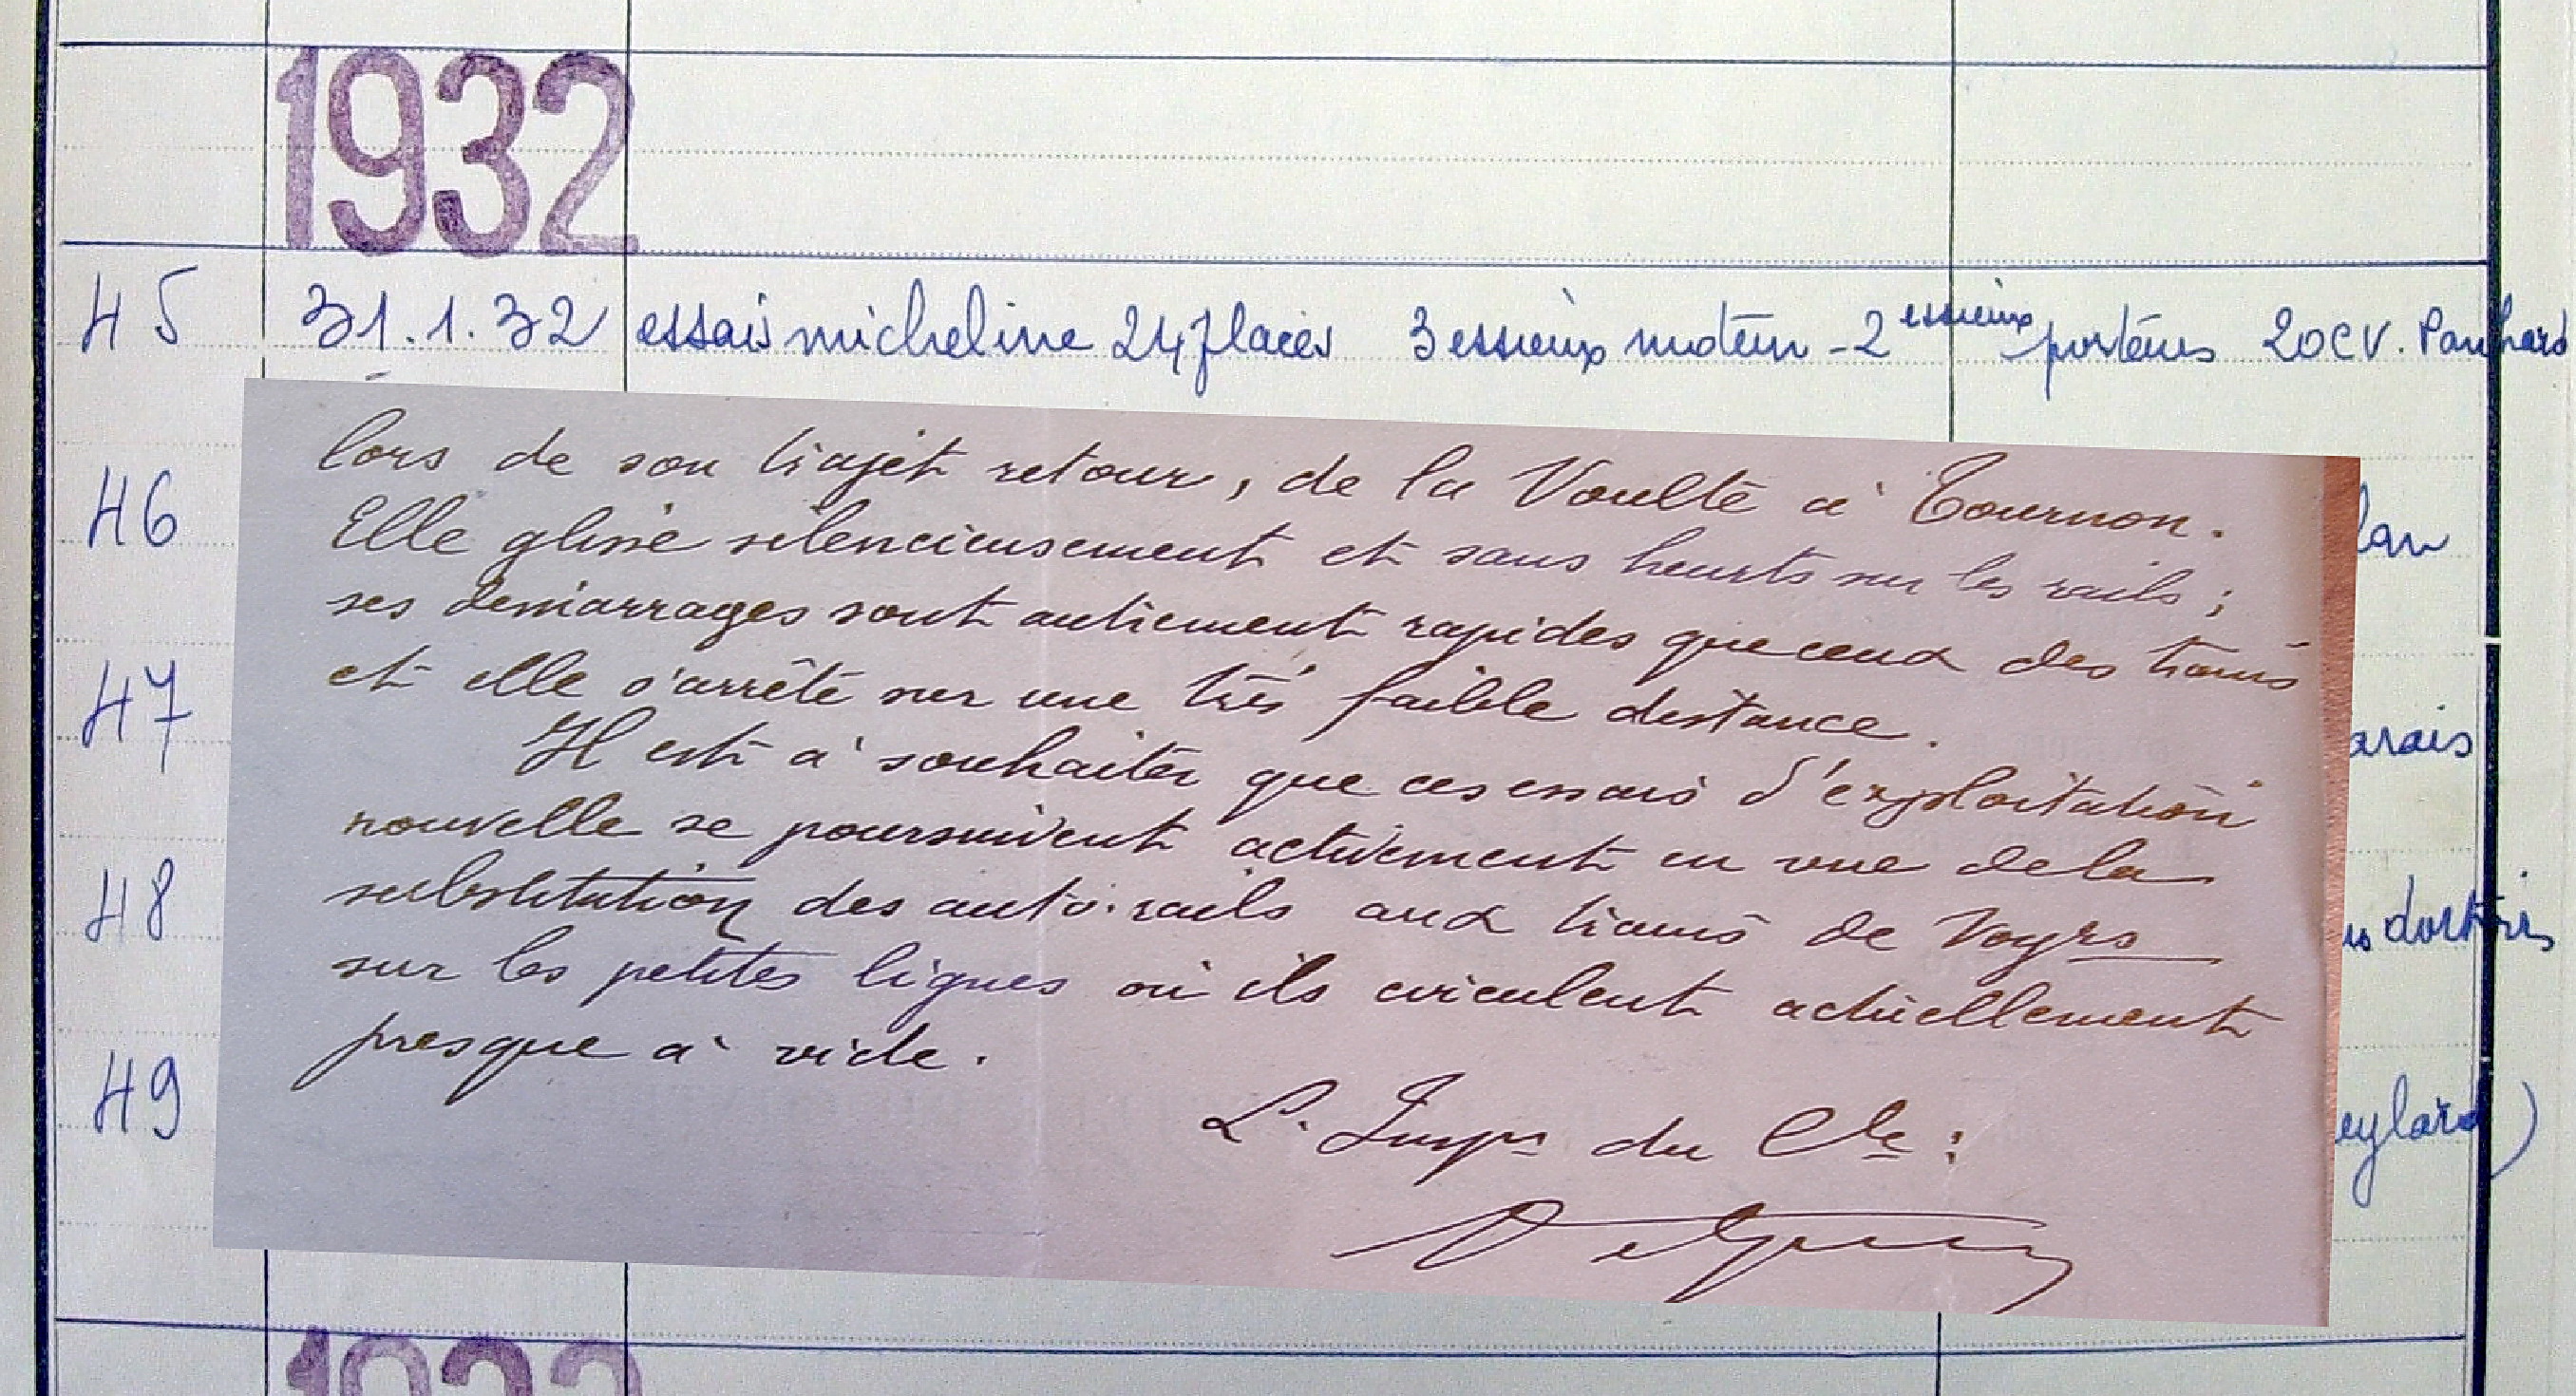 1932
45 31.1.32 essais micheline 24 places 3 essieux moteur - 2 essieux porteurs 20 CV. Panhard
lors de son trajet retour, de la Voulte à Tournon.
46 lan
Elle glisse silencieusement et sans heurts sur les rails ;
ses démarrages sont autrement rapides que ceux des trains
et elle s'arrête sur une très faible distance.
47 arais
Il est à souhaiter que ces essais d'exploitation
nouvelle se poursuivent activement en vue de la
substitution des auto-rails aux trains de Voyrs
48
sur les petites lignes où ils circulent actuellement
presque à vide.
49 eylard)
L'Inspr du Cle :
1932